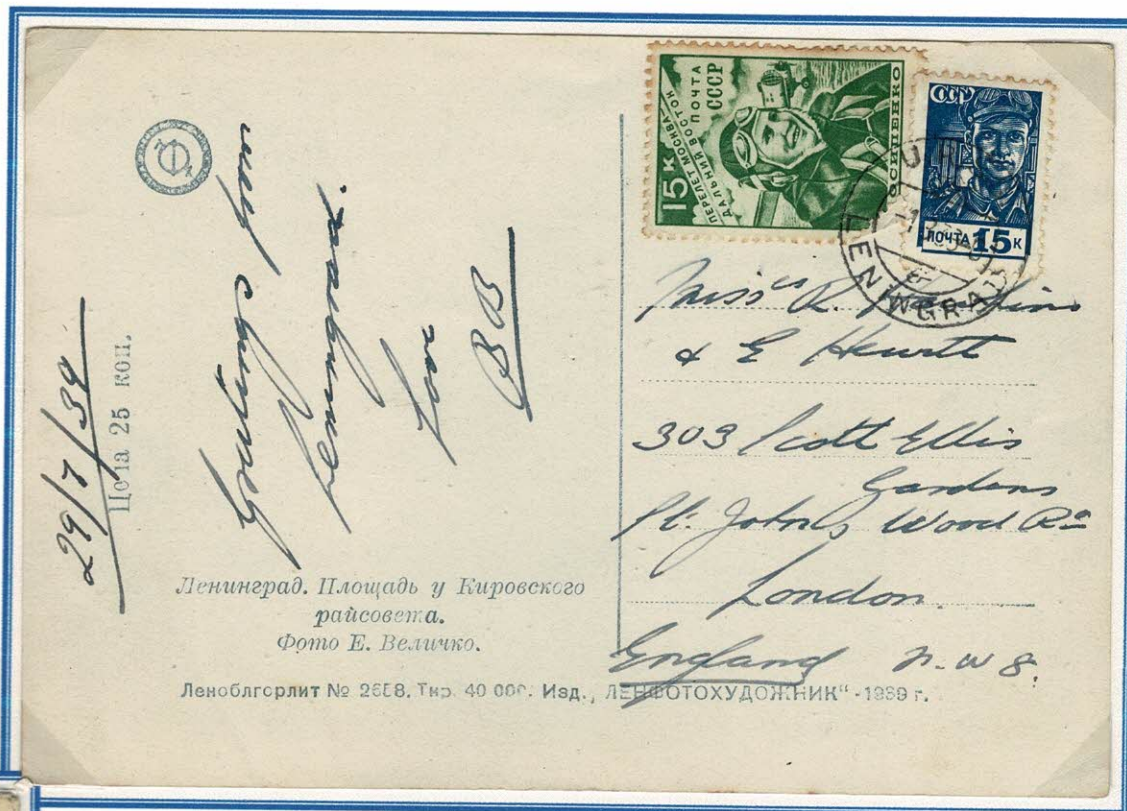 29/7/39
Цена 25 коп.
Greetings from
Leningrad.
Love
BB
Ленинград. Площадь у Кировского
райсовета.
Фото Е. Величко.
Леноблгорлит № 2658. Тир. 40 000. Изд. „ЛЕНФОТОХУДОЖНИК“ - 1939 г.
15 К
ПЕРЕЛЕТ МОСКВА
ДАЛЬНИЙ ВОСТОК
ПОЧТА
СССР
ОСИПЕНКО
СССР
ПОЧТА 15 К
LENINGRAD
Miss R.
& E Hewett
303 Scott Ellis
Gardens
St. John's Wood Rd
London
England N.W 8.